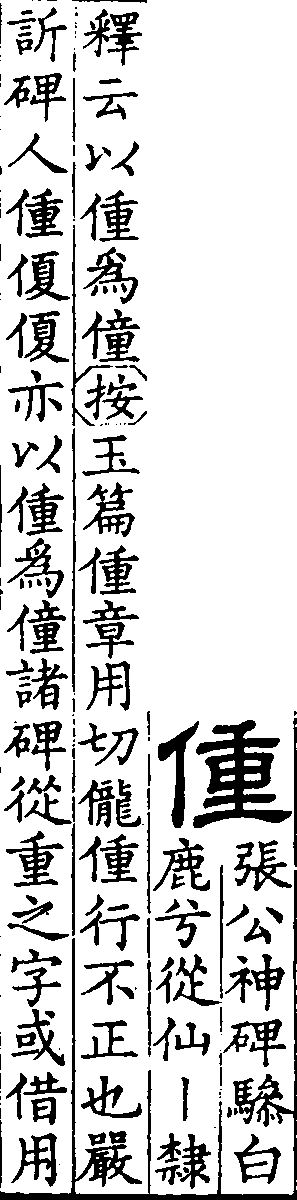 偅
張公神碑驂白
鹿兮從仙丨隸
釋云以偅爲僮按玉篇偅章用切儱偅行不正也嚴
訢碑人偅亦以偅爲僮諸碑從重之字或借用